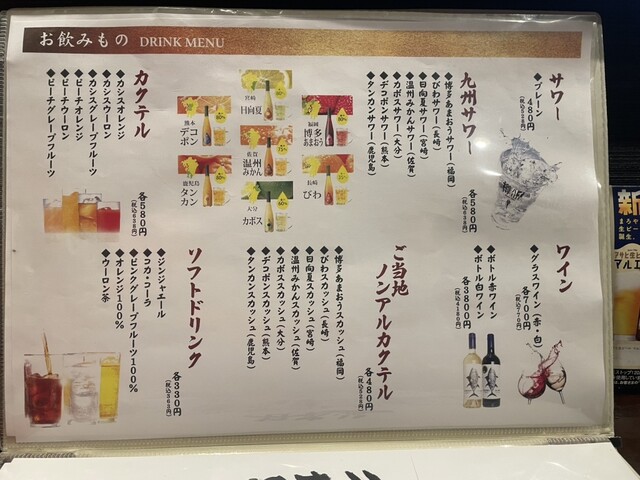 お飲みもの DRINK MENU
サワー
◆プレーン
480円
(税込528円)
九州サワー
◆博多あまおうサワー(福岡)
◆びわサワー(長崎)
◆日向夏サワー(宮崎)
◆温州みかんサワー(佐賀)
◆カボスサワー(大分)
◆デコポンサワー(熊本)
◆タンカンサワー(鹿児島)
各580円
(税込638円)
宮崎
日向夏
熊本
デコポン
福岡
博多あまおう
佐賀
温州みかん
鹿児島
タンカン
長崎
びわ
大分
カボス
カクテル
◆カシスオレンジ
◆カシスウーロン
◆カシスグレープフルーツ
◆ピーチオレンジ
◆ピーチウーロン
◆ピーチグレープフルーツ
各580円
(税込638円)
ワイン
◆グラスワイン(赤・白)
各700円
(税込770円)
◆ボトル赤ワイン
◆ボトル白ワイン
各3800円
(税込4180円)
ご当地
ノンアルカクテル
◆博多あまおうスカッシュ(福岡)
◆びわスカッシュ(長崎)
◆日向夏スカッシュ(宮崎)
◆温州みかんスカッシュ(佐賀)
◆カボススカッシュ(大分)
◆デコポンスカッシュ(熊本)
◆タンカンスカッシュ(鹿児島)
各480円
(税込528円)
ソフトドリンク
◆ジンジャエール
◆コカ・コーラ
◆ピンクグレープフルーツ100%
◆オレンジ100%
◆ウーロン茶
各330円
(税込363円)
新